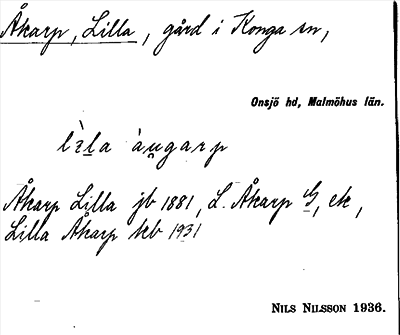 Åkarp, Lilla, gård i Konga sn,
Onsjö hd, Malmöhus län.
Åkarp Lilla jb 1881, L. Åkarp G, ek,
Lilla Åkarp kb 1931
NILS NILSSON 1936.